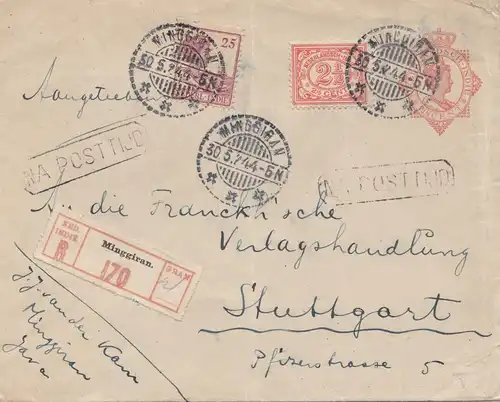 25
MINGGIRAN
30.5.24.4-5N
2½
CENT
MINGGIRAN
30.5.24.4-5N
Aangeteekend
NA POSTTIJD
MINGGIRAN
30.5.24.4-5N
NA POSTTIJD
An die Franckh'sche
Verlagshandlung
NED.
INDIË.
R
Minggiran.
170
GRAM
Stuttgart
Pfizerstrasse 5
J.J. van der Kam
Minggiran
Java